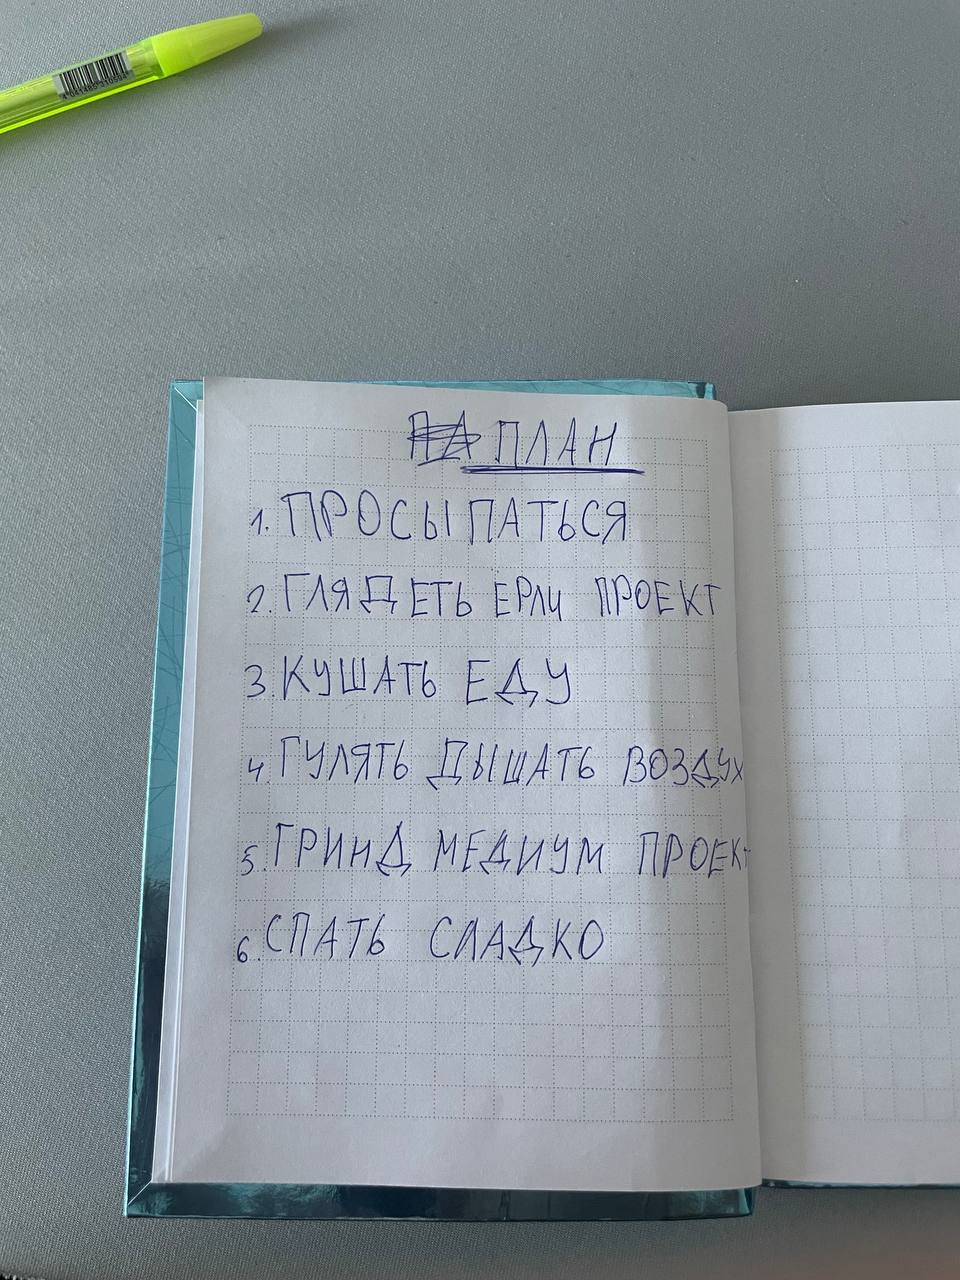 4 041485 310594
ПЛАН
1. ПРОСЫПАТЬСЯ
2. ГЛЯДЕТЬ ЕРЛИ ПРОЕКТ
3. КУШАТЬ ЕДУ
4. ГУЛЯТЬ ДЫШАТЬ ВОЗДУХ
5. ГРИНД МЕДИУМ ПРОЕКТ
6. СПАТЬ СЛАДКО